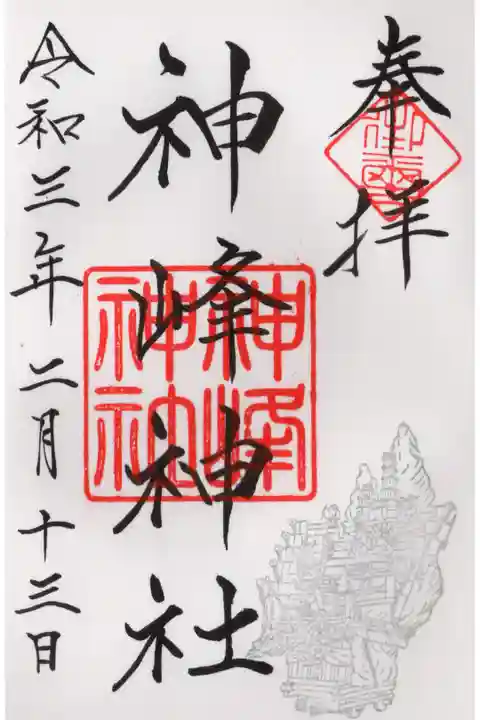 奉拝
神峰神社
神峰神社
令和三年二月十三日